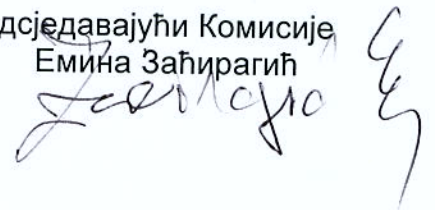 дсједавајући Комисије
Емина Заћирагић